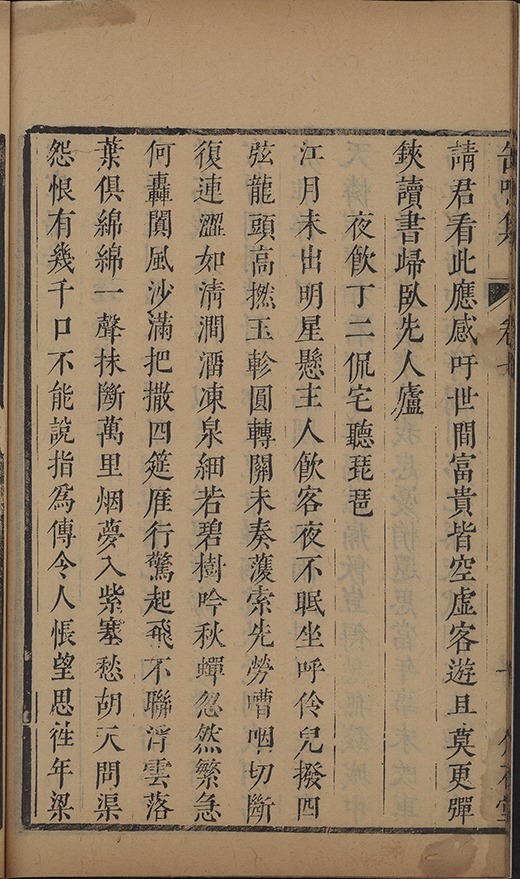 請君看此應感吁世間富貴皆空虛客遊且莫更彈
鋏讀書歸臥先人廬
夜飲丁二侃宅聽琵琶
江月未出明星懸主人飲客夜不眠坐呼伶兒撥四
弦龍頭高撚玉軫圓轉關未奏濩索先勞嘈咽切斷
復連澀如清澗酒凍泉細若碧樹吟秋蟬忽然繁急
何轟闐風沙滿把撒四筵雁行驚起飛不聯浮雲落
葉俱綿綿一聲抹斷萬里烟夢入紫塞愁胡天問渠
怨恨有幾千口不能說指為傳令人悵望思往年梁